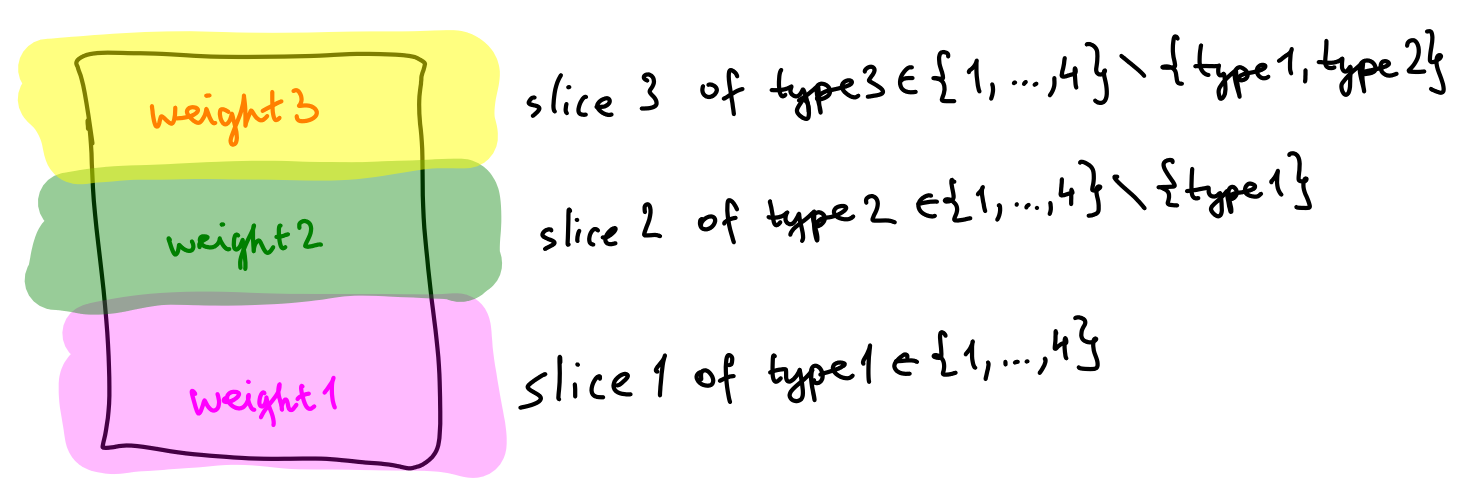 weight3 slice 3 of type3 ∈ {1, ...,4} \ {type1, type2}
weight2 slice 2 of type2 ∈{1, ...,4} \ {type1}
weight1 slice 1 of type1 ∈ {1, ...,4}